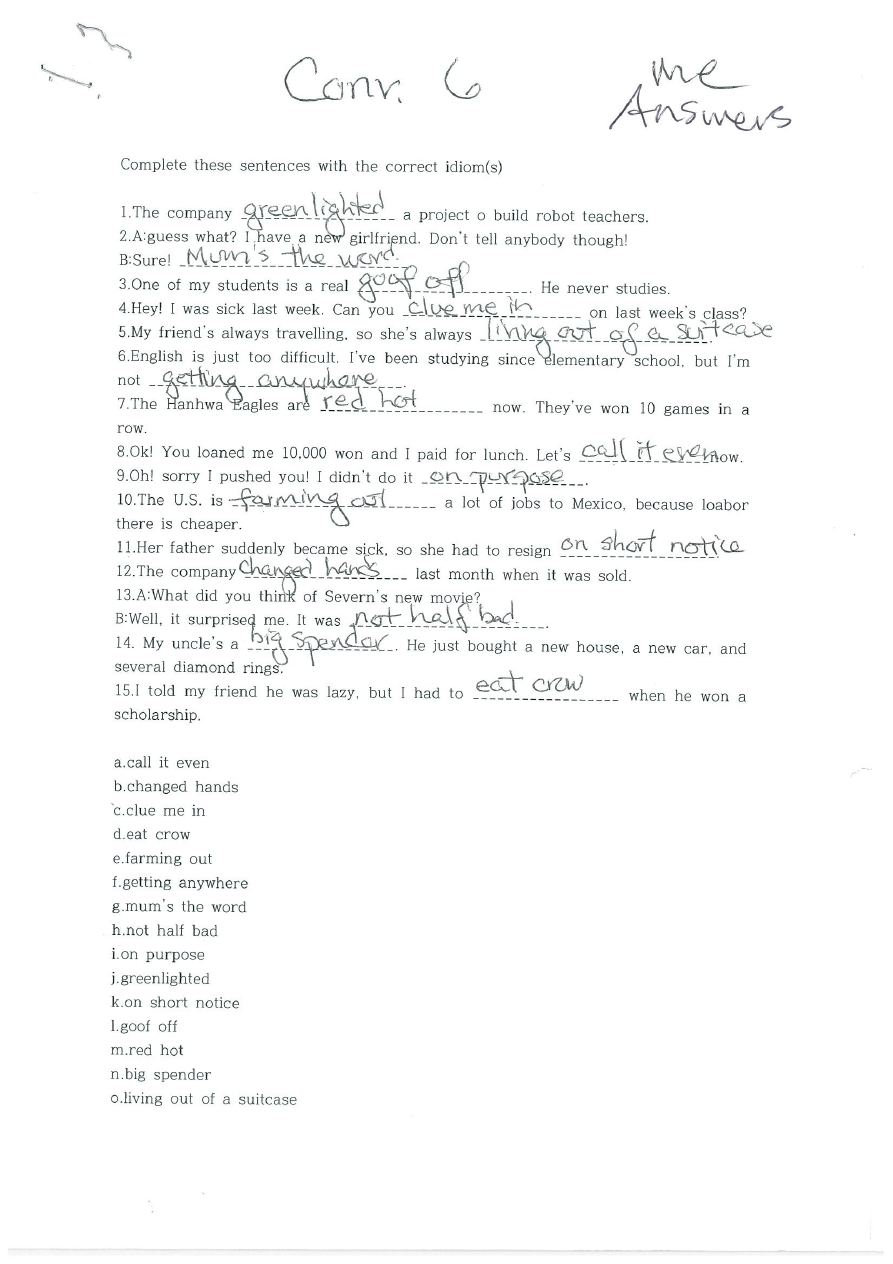 Conv. 6
me
Answers
Complete these sentences with the correct idiom(s)
1.The company greenlighted a project o build robot teachers.
2.A:guess what? I have a new girlfriend. Don't tell anybody though!
B:Sure! Mum's the word.
3.One of my students is a real goof off. He never studies.
4.Hey! I was sick last week. Can you clue me in on last week's class?
5.My friend's always travelling, so she's always living out of a suitcase
6.English is just too difficult. I've been studying since elementary school, but I'm
not getting anywhere.
7.The Hanhwa Eagles are red hot now. They've won 10 games in a
row.
8.Ok! You loaned me 10,000 won and I paid for lunch. Let's call it even now.
9.Oh! sorry I pushed you! I didn't do it on purpose.
10.The U.S. is farming out a lot of jobs to Mexico, because loabor
there is cheaper.
11.Her father suddenly became sick, so she had to resign on short notice
12.The company changed hands last month when it was sold.
13.A:What did you think of Severn's new movie?
B:Well, it surprised me. It was not half bad.
14. My uncle's a big spender. He just bought a new house, a new car, and
several diamond rings.
15.I told my friend he was lazy, but I had to eat crow when he won a
scholarship.
a.call it even
b.changed hands
c.clue me in
d.eat crow
e.farming out
f.getting anywhere
g.mum's the word
h.not half bad
i.on purpose
j.greenlighted
k.on short notice
l.goof off
m.red hot
n.big spender
o.living out of a suitcase